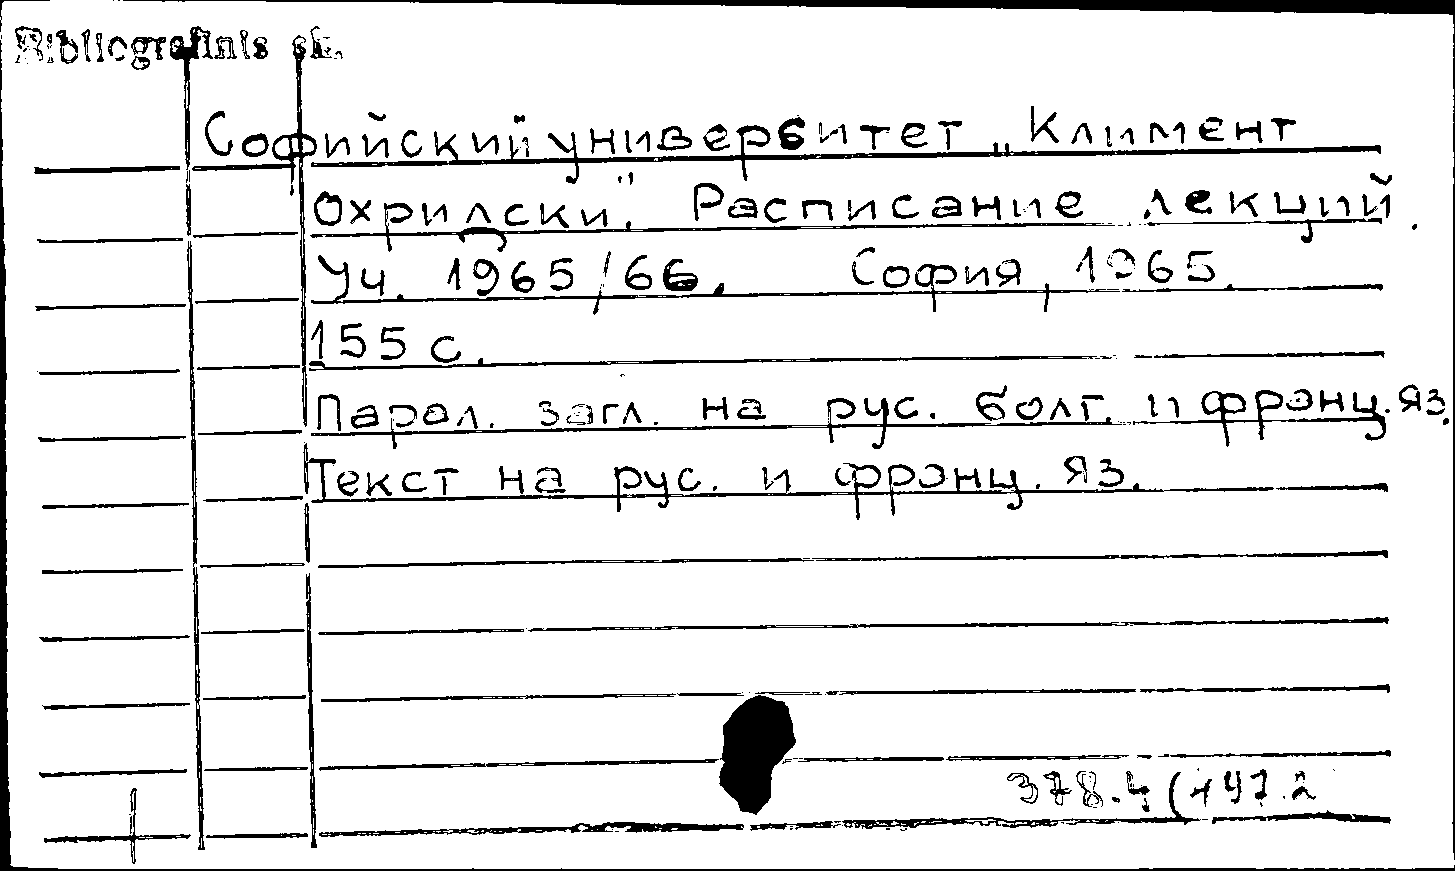 Bibliografinis sk.
Софийский университет „Климент
Охридски". Расписание лекций.
Уч. 1965/66. София, 1965.
155 с.
Парал. загл. на рус. болг. и франц. яз.
Текст на рус. и франц. яз.
378.4(497.2